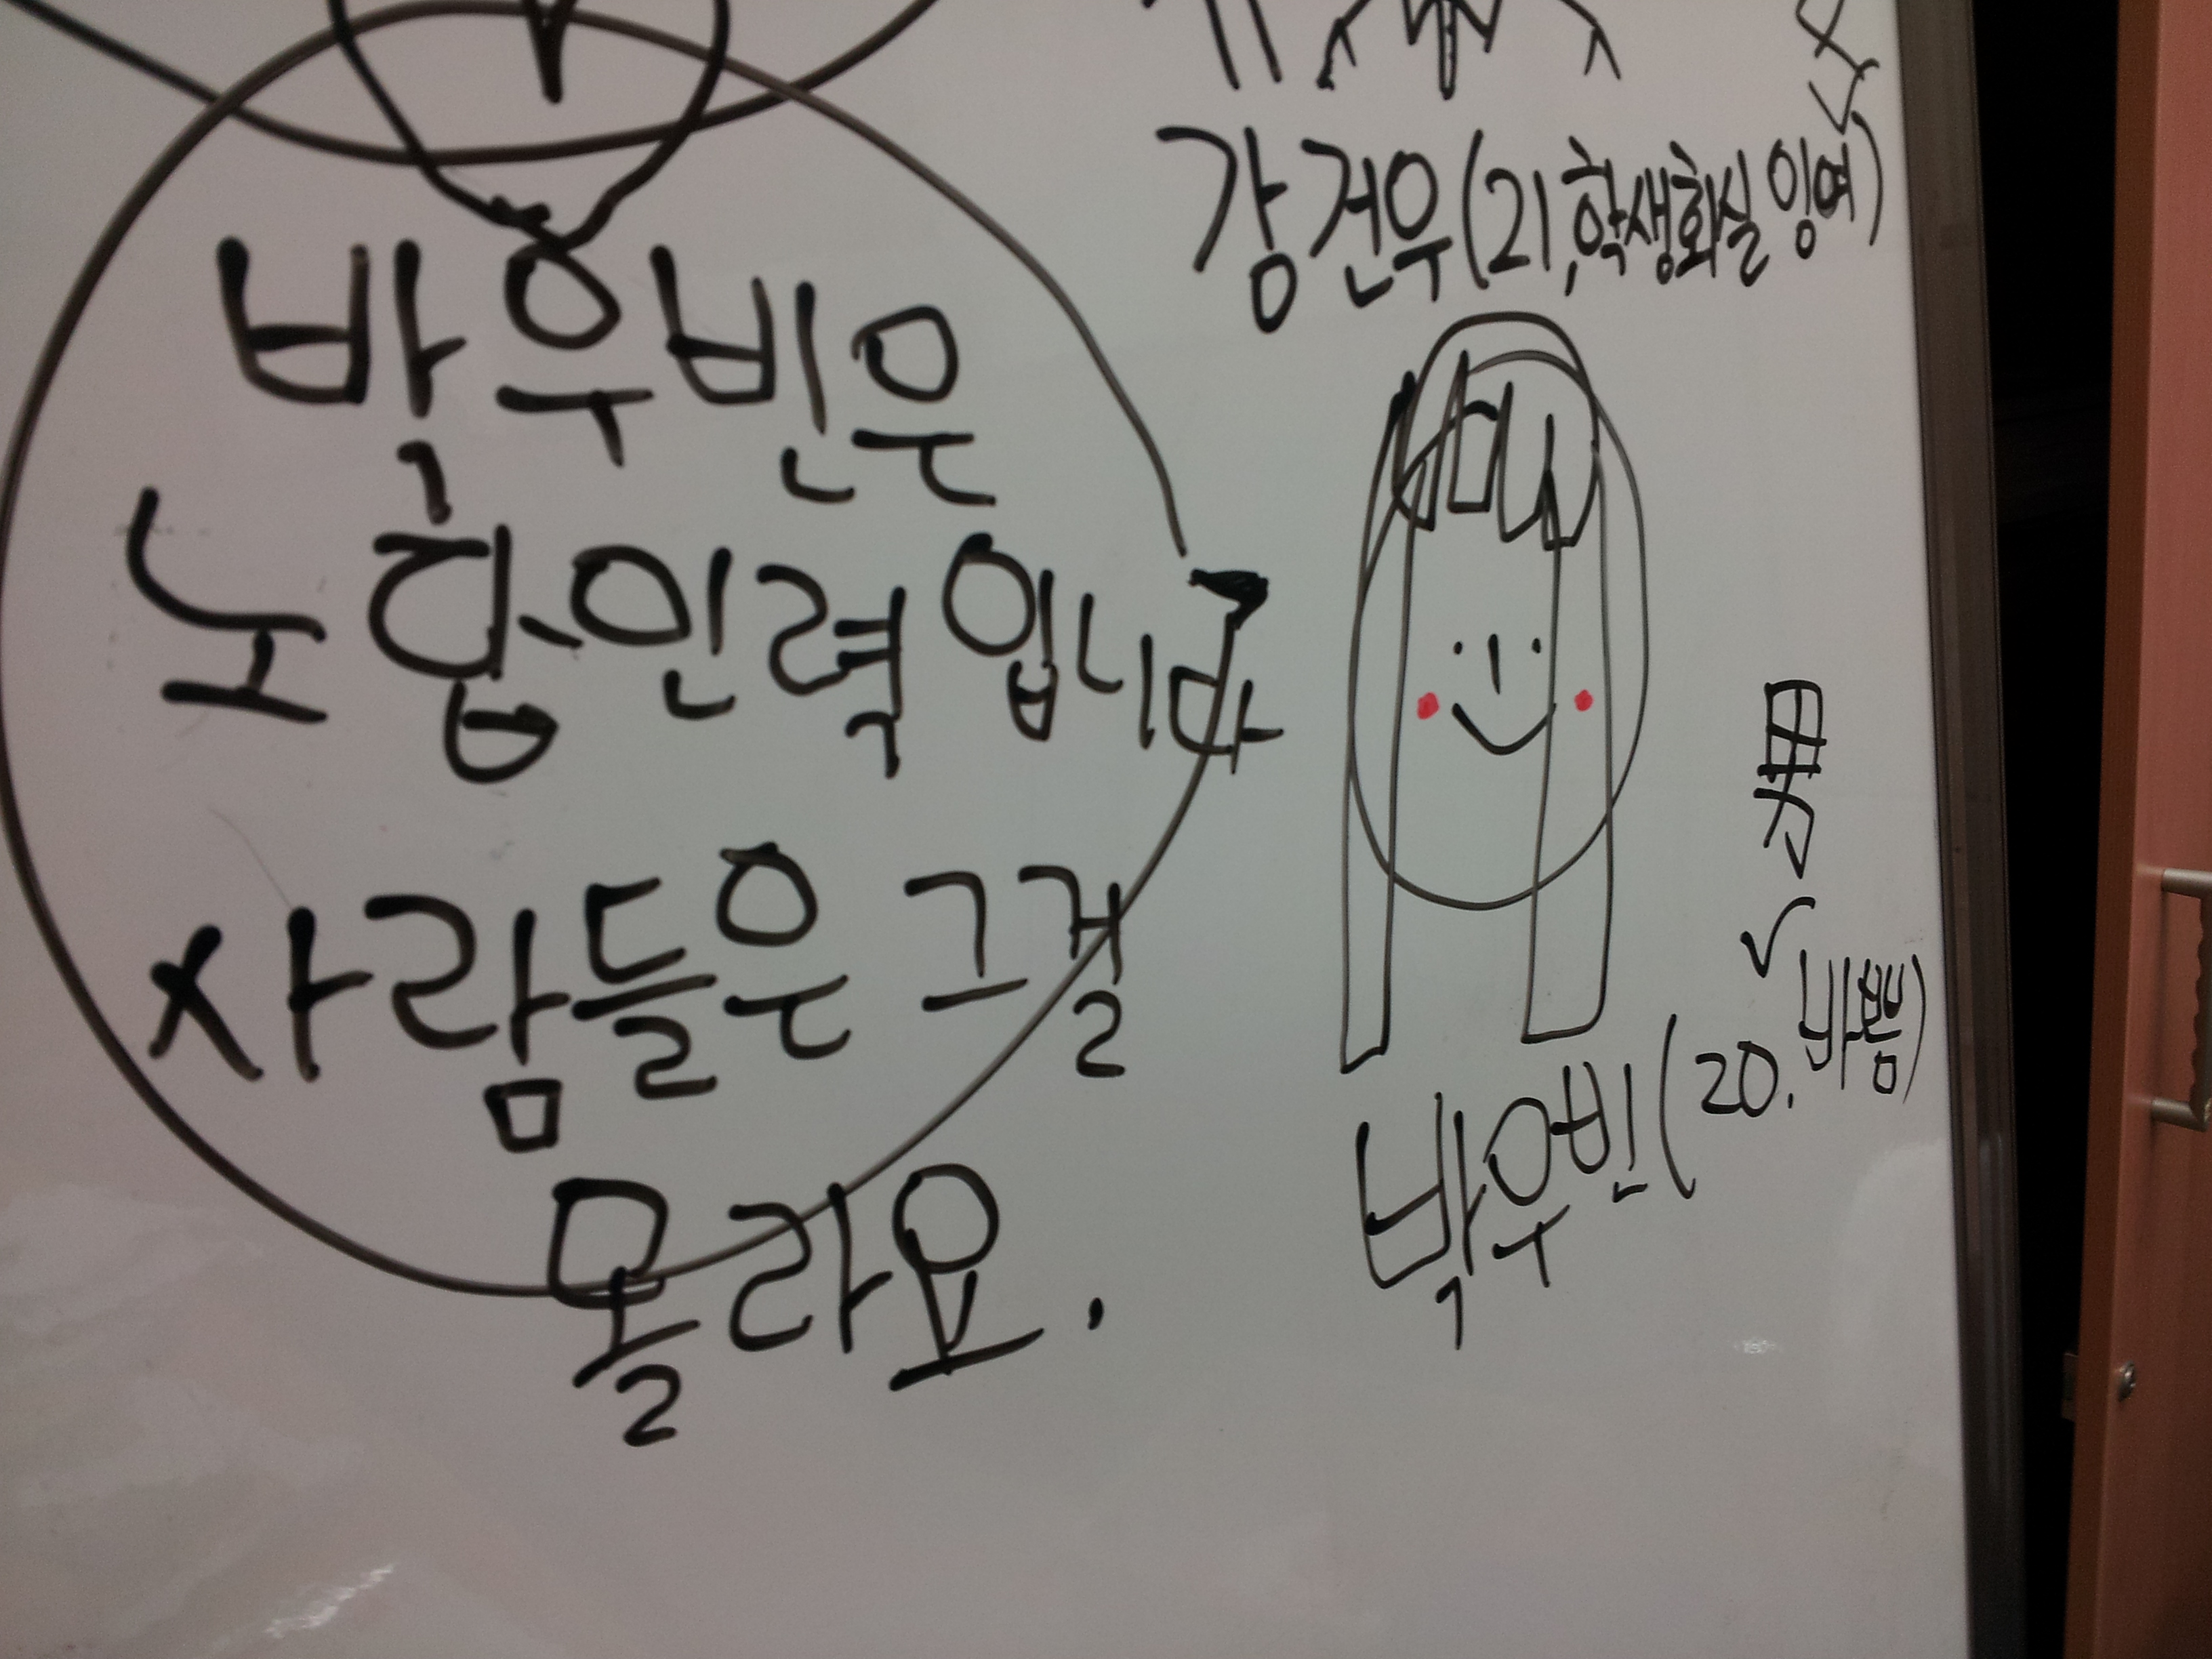 박우빈은
노잼인력입니다
사람들은 그걸
몰라요.
강건우(21, 학생회실 잉여)
男
박우빈(20. 바쁨)